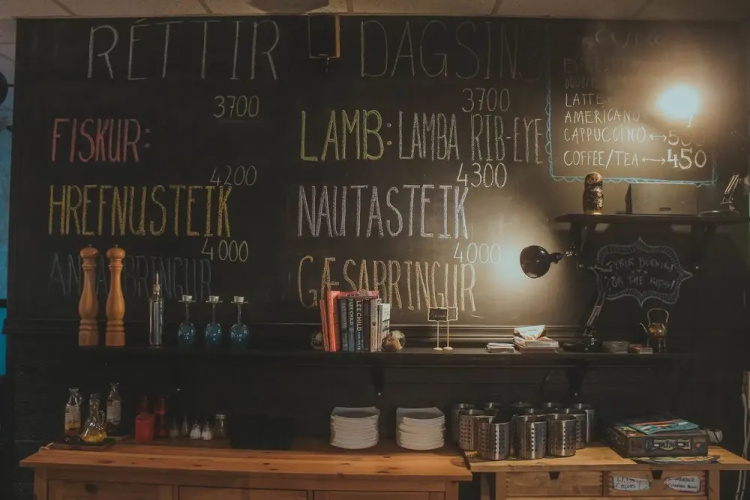 RÉTTIR DAGSINS
3700
FISKUR:
4200
HREFNUSTEIK
4000
ANDABRINGUR
3700
LAMB: LAMBA RIB-EYE
4300
NAUTASTEIK
4000
GÆSABRINGUR
LATTE
AMERICANO
CAPPUCCINO
COFFEE/TEA 450
LEE CHILD
LEE CHILD